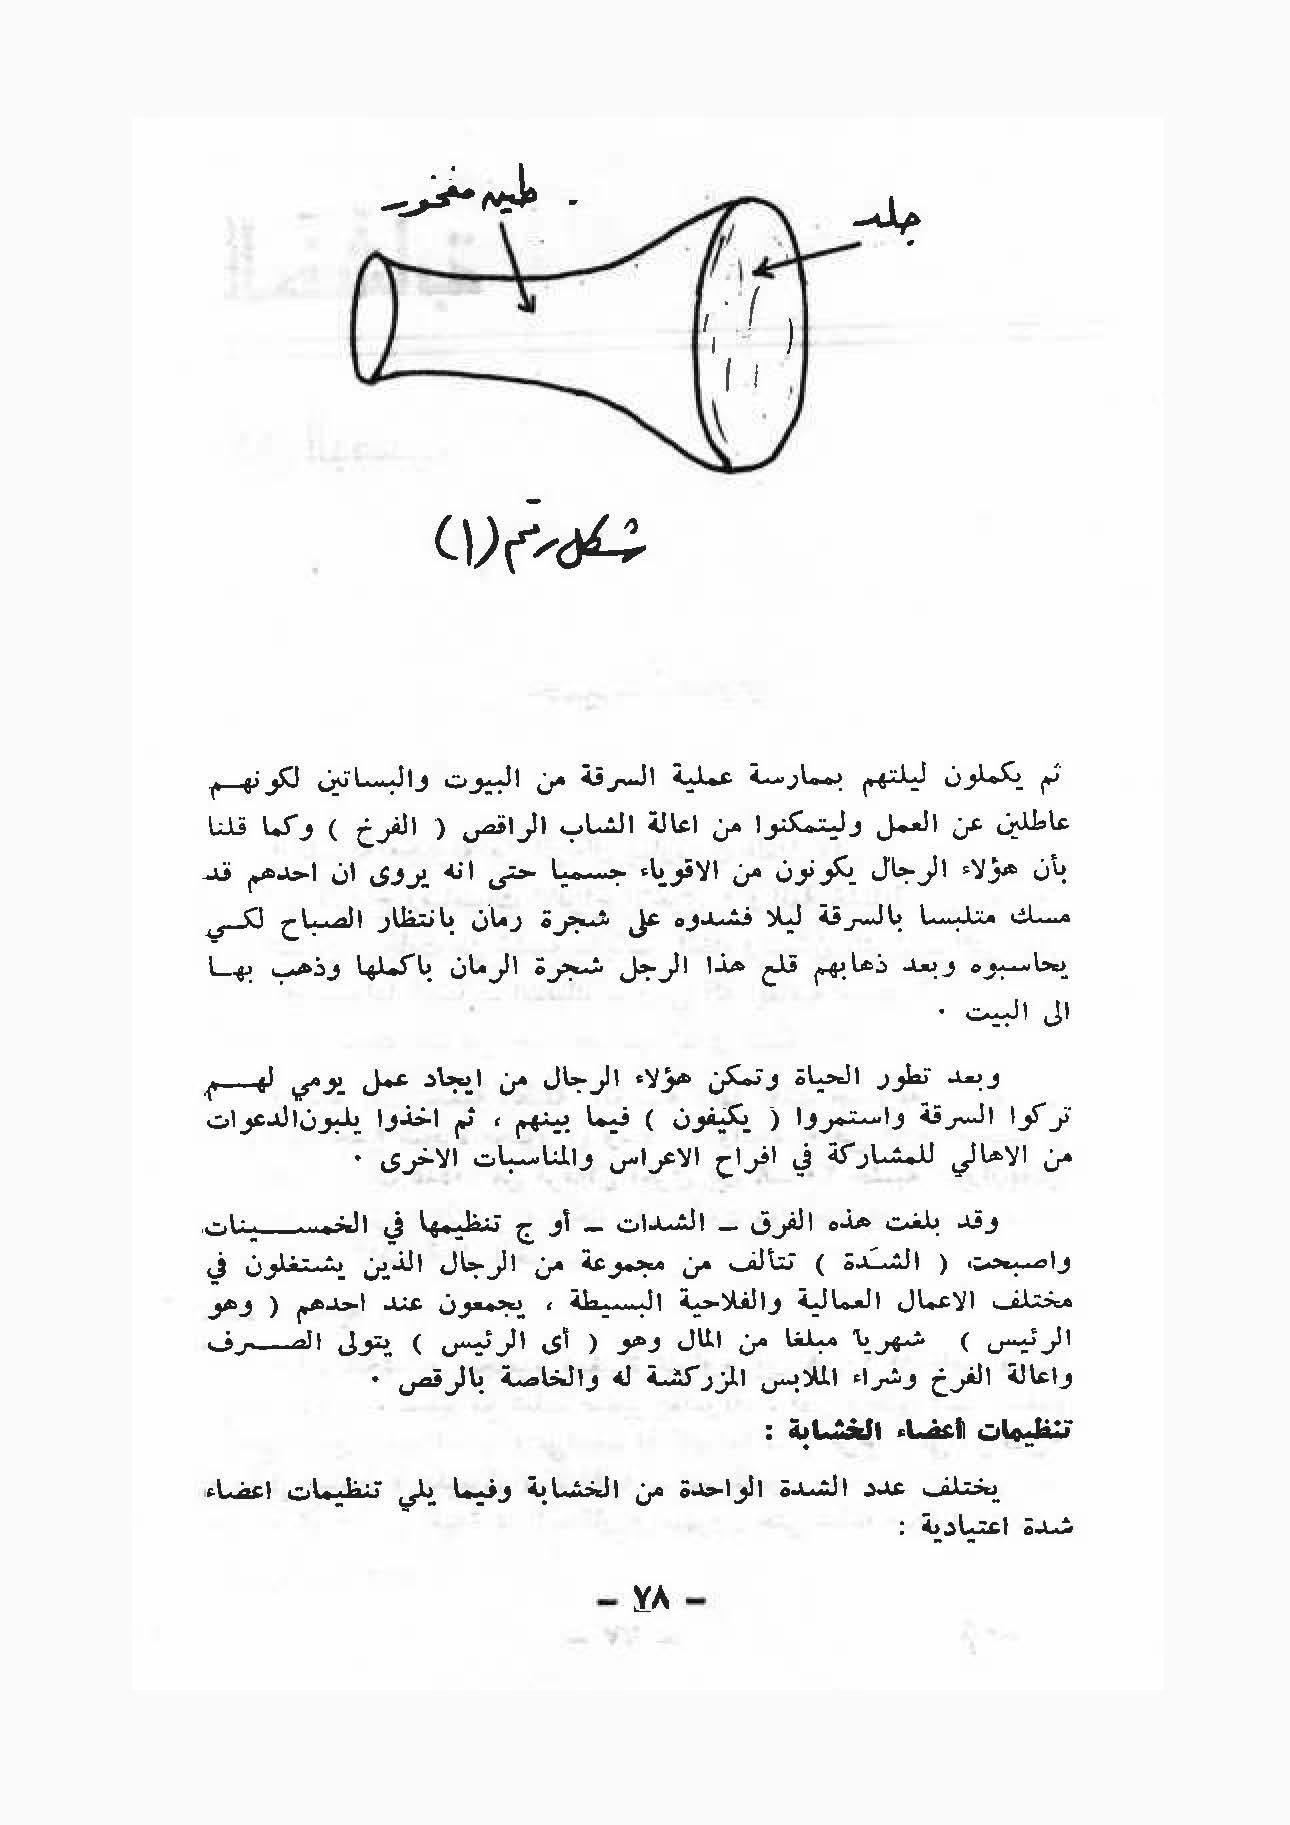 طين مفخور
جلد
شكل رقم (١)
ثم يكملون ليلتهم بممارسة عملية السرقة من البيوت والبساتين لكونهـــم
عاطلين عن العمل وليتمكنوا من اعالة الشاب الراقص ( الفرخ ) وكما قلنا
بأن هؤلاء الرجال يكونون من الاقوياء جسميا حتى انه يروى ان احدهم قد
مسك متلبسا بالسرقة ليلا فشدوه على شجرة رمان بانتظار الصباح لكـــي
يحاسبوه وبعد ذهابهم قلع هذا الرجل شجرة الرمان باكملها وذهب بهـــا
الى البيت ٠
وبعد تطور الحياة وتمكن هؤلاء الرجال من ايجاد عمل يومي لهـــم
تركوا السرقة واستمروا ( يكيفون ) فيما بينهم ، ثم اخذوا يلبون الدعوات
من الاهالي للمشاركة في افراح الاعراس والمناسبات الاخرى ٠
وقد بلغت هذه الفرق ــ الشدات ــ أو ج تنظيمها في الخمســـينات
واصبحت ( الشَدة ) تتألف من مجموعة من الرجال الذين يشتغلون في
مختلف الاعمال العمالية والفلاحية البسيطة ، يجمعون عند احدهم ( وهو
الرئيس ) شهريا مبلغا من المال وهو ( أى الرئيس ) يتولى الصـــرف
واعالة الفرخ وشراء الملابس المزركشة له والخاصة بالرقص ٠
تنظيمات أعضاء الخشابة :
يختلف عدد الشدة الواحدة من الخشابة وفيما يلي تنظيمات اعضاء
شدة اعتيادية :
– ٧٨ –